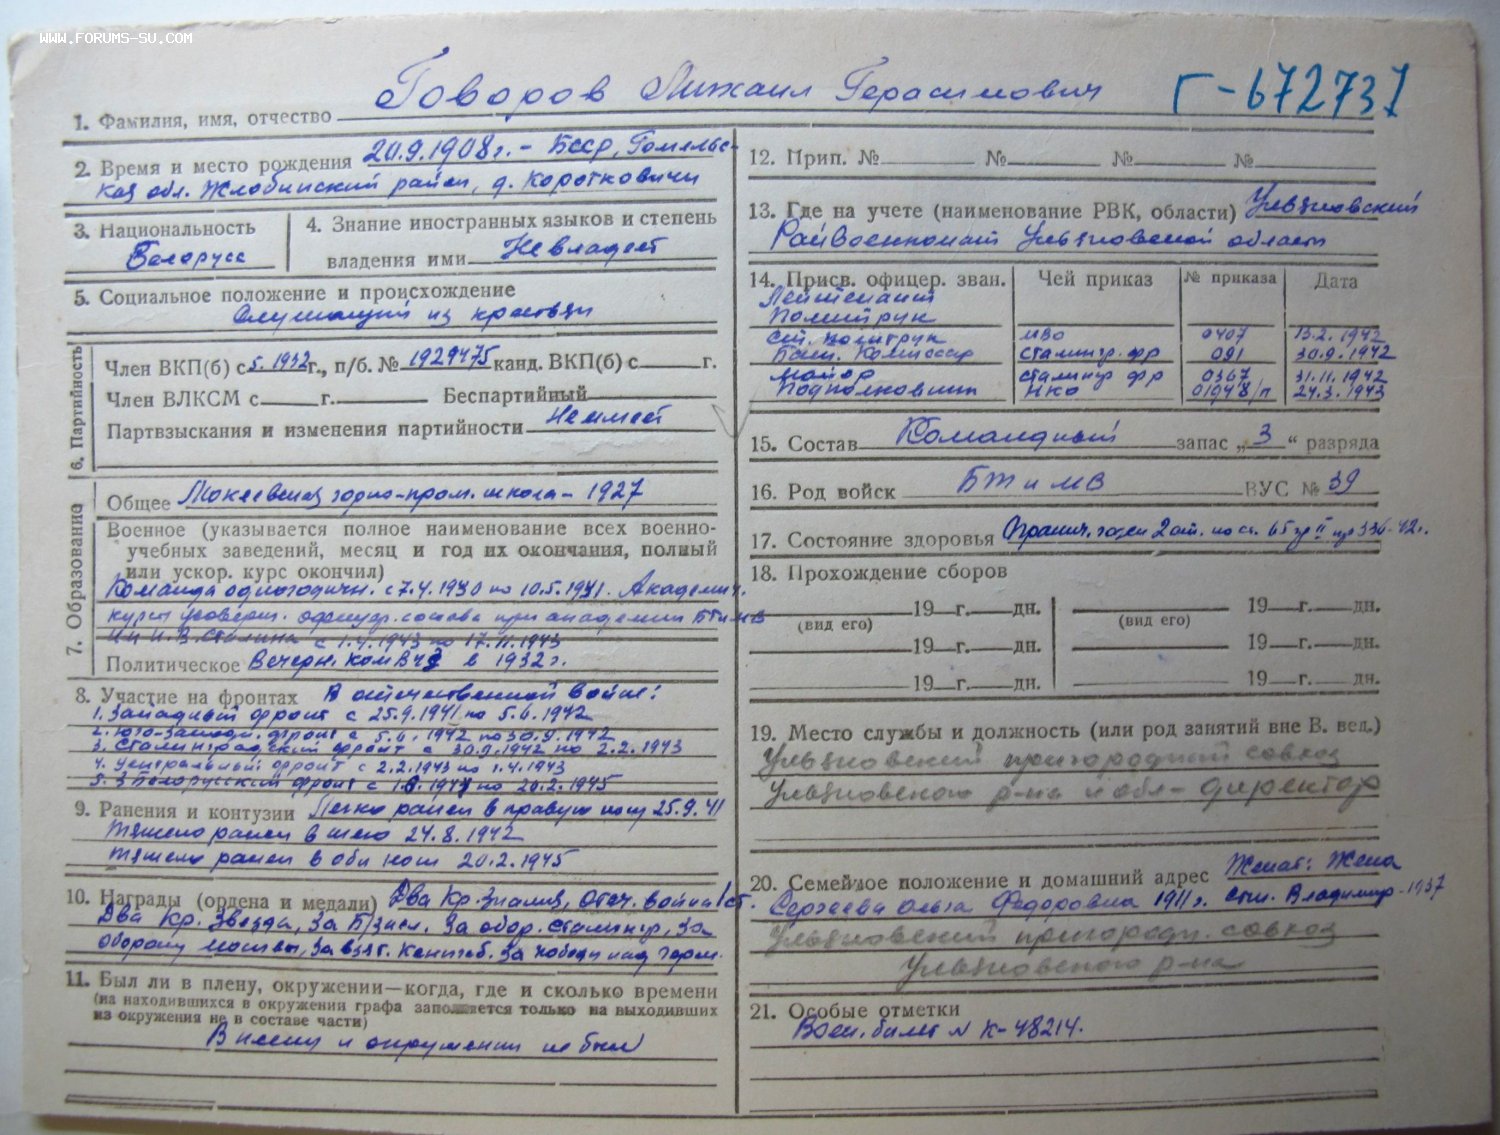 WWW.FORUMS-SU.COM
Г-672737
1. Фамилия, имя, отчество Говоров Михаил Герасимович
2. Время и место рождения 20.9.1908г. - БССР, Гомельс-
кая обл. Жлобинский район, д. Коротковичи
3. Национальность
Белорусс
4. Знание иностранных языков и степень
владения ими Не владеет
5. Социальное положение и происхождение
Служащий из крестьян
6. Партийность
Член ВКП(б) с 5.1932 г., п/б. № 1929475 канд. ВКП(б) с г.
Член ВЛКСМ с г. Беспартийный
Партвзыскания и изменения партийности Не имеет
7. Образование
Общее Макеевская горно-пром. школа - 1927
Военное (указывается полное наименование всех военно-
учебных заведений, месяц и год их окончания, полный
или ускор. курс окончил)
Команда одногодичн. с 7.4.1930 по 10.5.1931. Академич.
курсы усоверш. офицер. состава при академии БТ и МВ
им И.В. Сталина с 1.4.1943 по 17.11.1943
Политическое Вечерн. в 1932г.
8. Участие на фронтах В отечественной войне:
1. Западный фронт с 25.9.1941 по 5.6.1942
2. Юго-Западн. фронт с 5.6.1942 по 30.9.1942
3. Сталинградский фронт с 30.9.1942 по 2.2.1943
4. Центральный фронт с 2.2.1943 по 1.4.1943
5. 3 Белорусский фронт с по 20.2.1945
9. Ранения и контузии Легко ранен в правую ногу 25.9.41
Тяжело ранен в шею 24.8.1942
Тяжело ранен в обе ноги 20.2.1945
10. Награды (ордена и медали) Два Кр. Знамя, Отеч. война I ст.
Два Кр. Звезда, За За обор. Сталингр, За
оборону Москвы, За взят. Кенигсб. За победу над герм.
11. Был ли в плену, окружении—когда, где и сколько времени
(на находившихся в окружении графа заполняется только на выходивших
из окружения не в составе части)
В плену и окружении не был
12. Прип. № № № №
13. Где на учете (наименование РВК, области) Ульяновский
Райвоенкомат Ульяновской области
14. Присв. офицер. зван. Чей приказ № приказа Дата
Лейтенант
Политрук
Ст. политрук МВО 0407 13.2.1942
Бат. Комиссар Сталингр. фр 091 30.9.1942
Майор Сталингр фр 0367 31.11.1942
Подполковник НКО 01948/п 24.3.1943
15. Состав Командный запас „3“ разряда
16. Род войск БТ и МВ ВУС № 39
17. Состояние здоровья Огранич. годен 2 ст. по ст. 65 гр II пр 336-42г.
18. Прохождение сборов
19 г. дн. 19 г. дн.
(вид его) (вид его)
19 г. дн. 19 г. дн.
19 г. дн. 19 г. дн.
19. Место службы и должность (или род занятий вне В. вед.)
Ульяновский пригородный совхоз
Ульяновского р-на и обл - директор
20. Семейное положение и домашний адрес Женат: Жена
Сергеева Ольга Федоровна 1911г. сын. Владимир - 1937
Ульяновский пригородн. совхоз
Ульяновского р-на
21. Особые отметки
Воен. билет N К-48214.